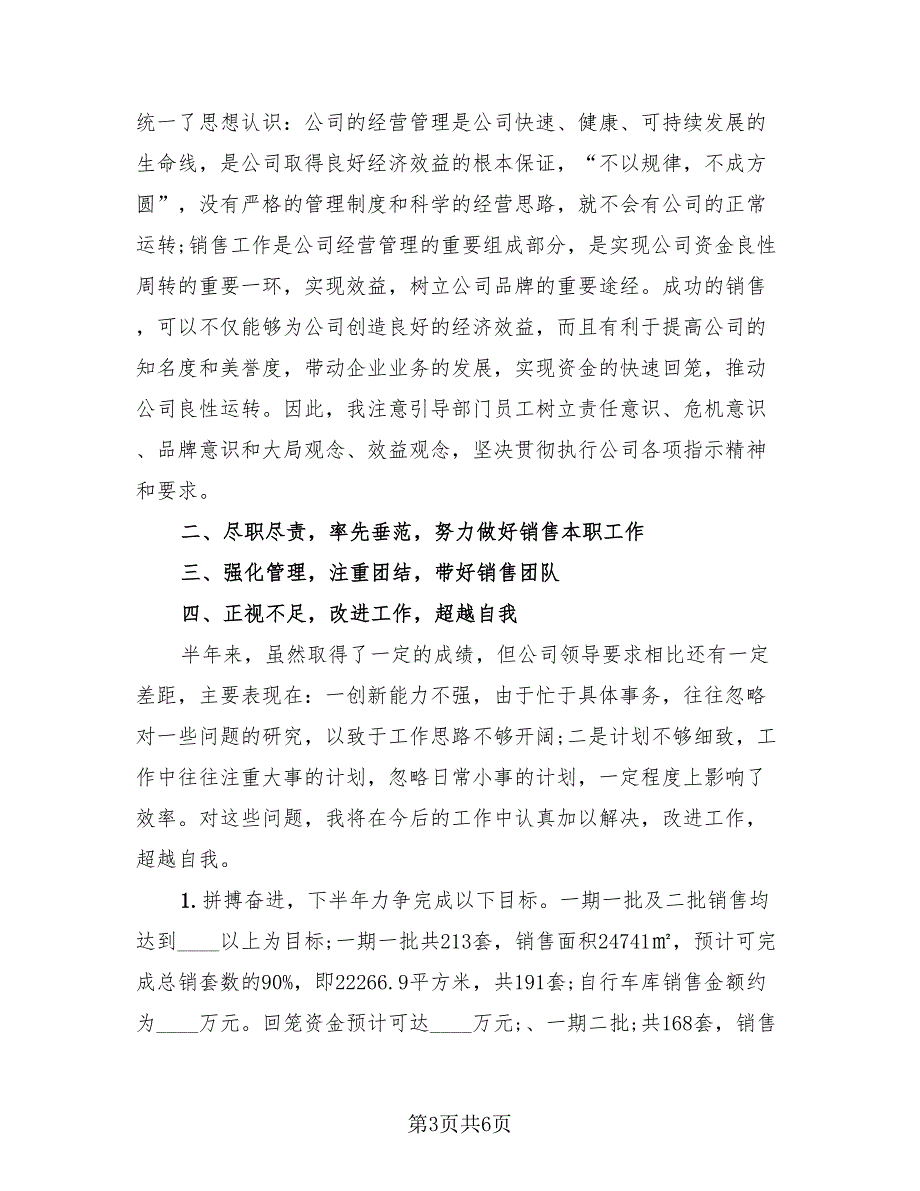 统一了思想认识：公司的经营管理是公司快速、健康、可持续发展的
生命线，是公司取得良好经济效益的根本保证，“不以规律，不成方
圆”，没有严格的管理制度和科学的经营思路，就不会有公司的正常
运转;销售工作是公司经营管理的重要组成部分，是实现公司资金良性
周转的重要一环，实现效益，树立公司品牌的重要途经。成功的销售
，可以不仅能够为公司创造良好的经济效益，而且有利于提高公司的
知名度和美誉度，带动企业业务的发展，实现资金的快速回笼，推动
公司良性运转。因此，我注意引导部门员工树立责任意识、危机意识
、品牌意识和大局观念、效益观念，坚决贯彻执行公司各项指示精神
和要求。
二、尽职尽责，率先垂范，努力做好销售本职工作
三、强化管理，注重团结，带好销售团队
四、正视不足，改进工作，超越自我
半年来，虽然取得了一定的成绩，但公司领导要求相比还有一定
差距，主要表现在：一创新能力不强，由于忙于具体事务，往往忽略
对一些问题的研究，以致于工作思路不够开阔;二是计划不够细致，工
作中往往注重大事的计划，忽略日常小事的计划，一定程度上影响了
效率。对这些问题，我将在今后的工作中认真加以解决，改进工作，
超越自我。
1.拼搏奋进，下半年力争完成以下目标。一期一批及二批销售均
达到____以上为目标;一期一批共213套，销售面积24741㎡，预计可完
成总销套数的90%，即22266.9平方米，共191套;自行车库销售金额约
为____万元。回笼资金预计可达____万元;、一期二批;共168套，销售
第3页共6页